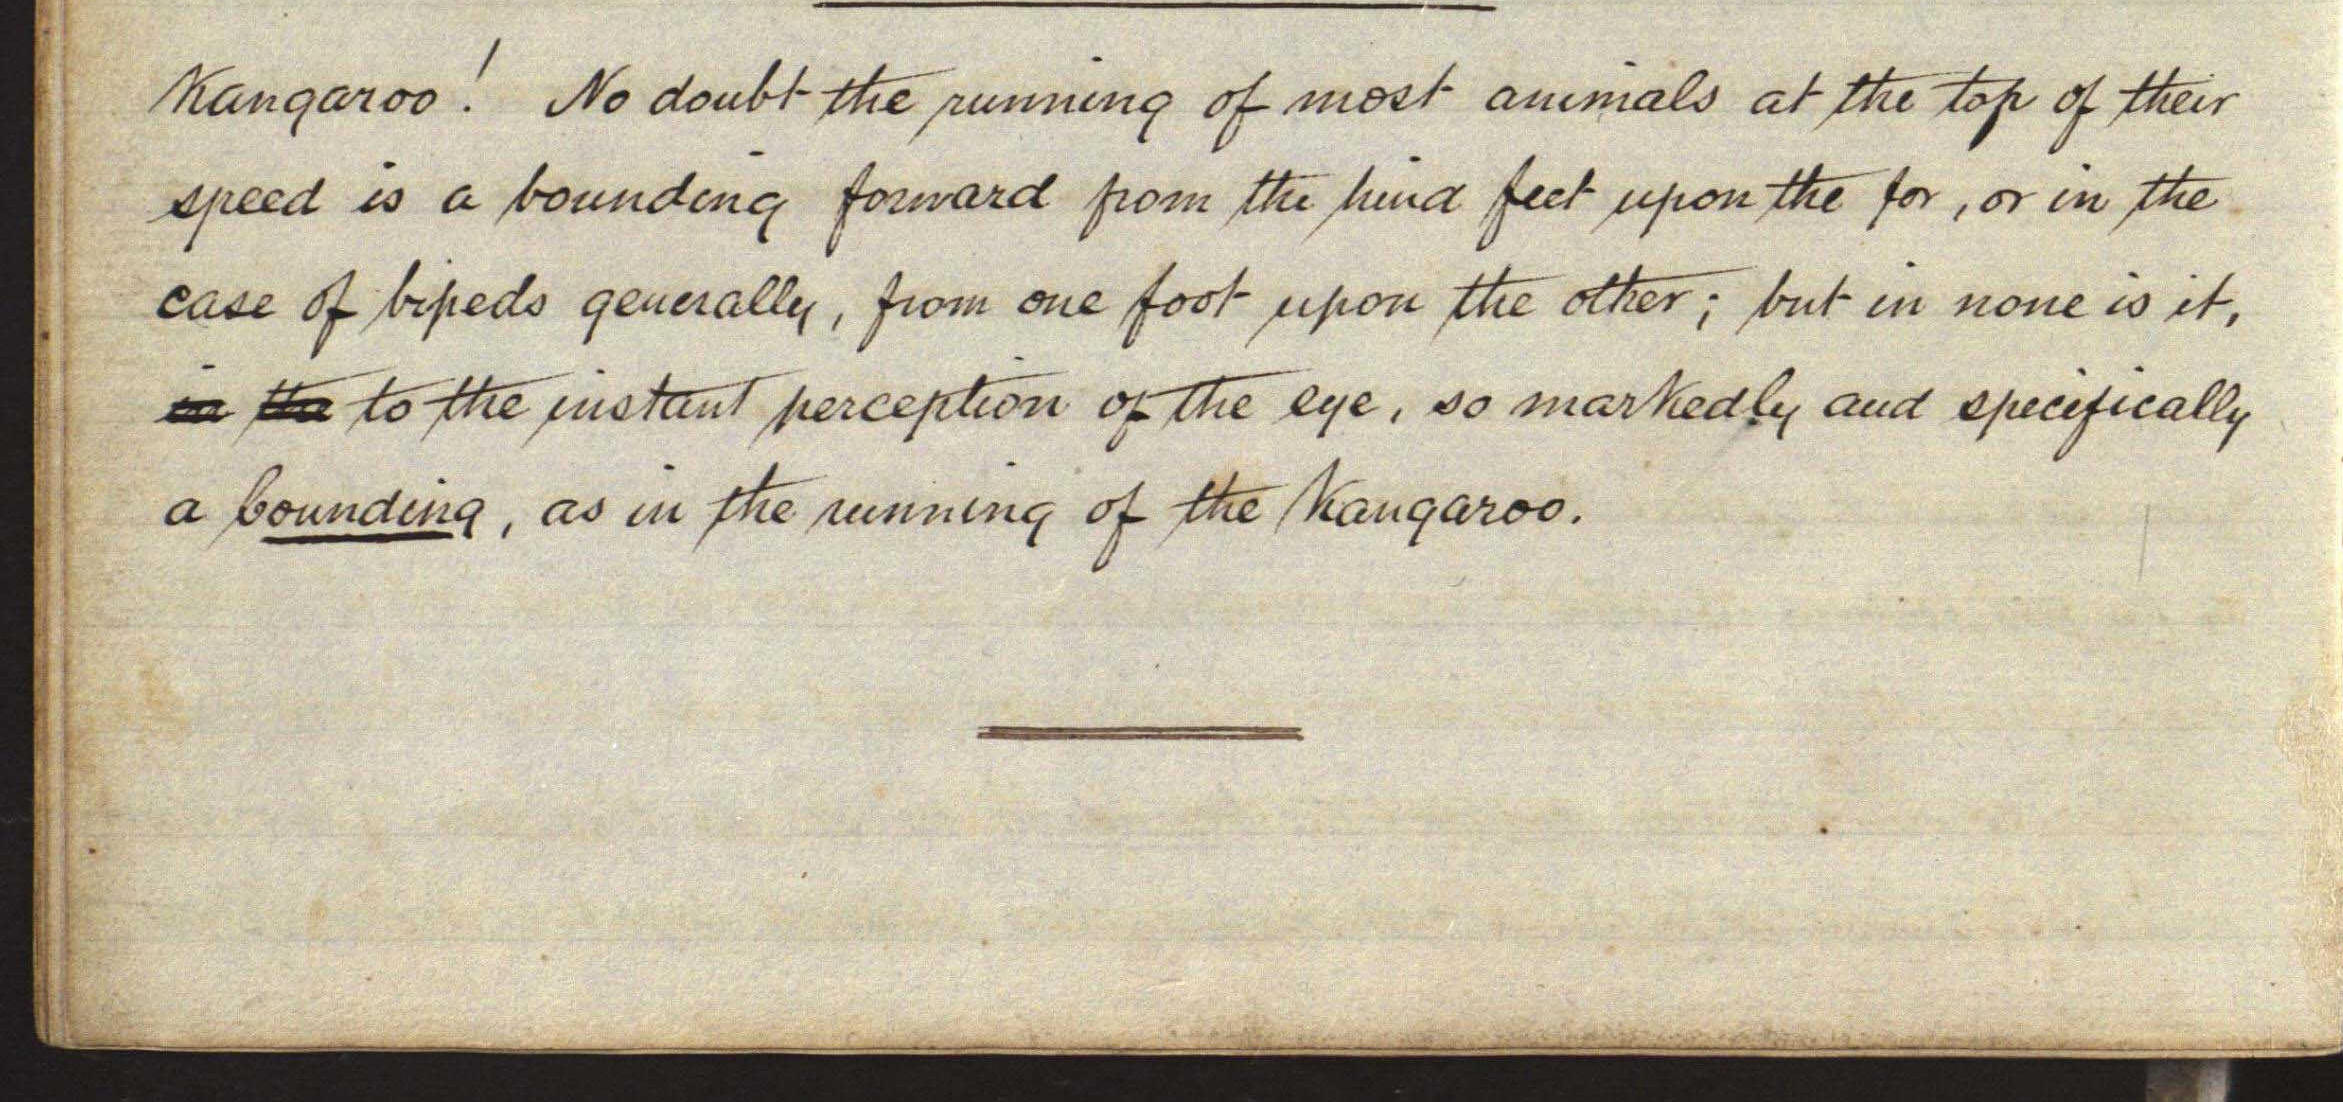 Kangaroo! No doubt the running of most animals at the top of their
speed is a bounding forward from the hind feet upon the for, or in the
case of bipeds generally, from one foot upon the other; but in none is it,
in the to the instant perception of the eye, so markedly and specifically
a bounding, as in the running of the Kangaroo.